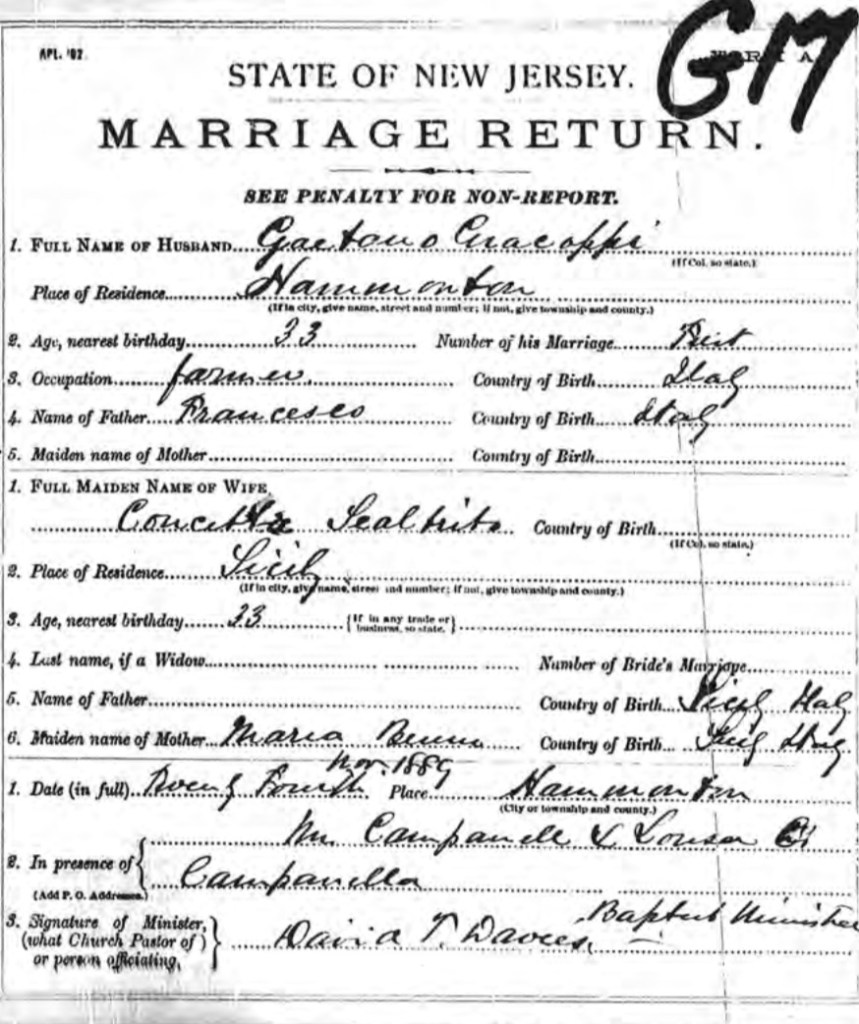 G17
APL. '92.
STATE OF NEW JERSEY.
MARRIAGE RETURN.
SEE PENALTY FOR NON-REPORT.
1. FULL NAME OF HUSBAND Gaetano
(If Col. so state.)
Place of Residence Hammonton
(If in city, give name, street and number; if not, give township and county.)
2. Age, nearest birthday 33 Number of his Marriage First
3. Occupation farmer. Country of Birth Italy
4. Name of Father Francesco Country of Birth Italy
5. Maiden name of Mother Country of Birth
1. FULL MAIDEN NAME OF WIFE
Concetta Country of Birth
(If Col. so state.)
2. Place of Residence Sicily
(If in city, give name, street and number; if not, give township and county.)
3. Age, nearest birthday 33 {If in any trade or business, so state.}
4. Last name, if a Widow Number of Bride's Marriage
5. Name of Father Country of Birth Sicily Italy
6. Maiden name of Mother Maria Country of Birth Italy
1. Date (in full) Fourth Nov. 1889 Place Hammonton
(City or township and county.)
2. In presence of { Campanell & Louisa
(Add P. O. Addresses.) Campanella
3. Signature of Minister, (what Church Pastor of) or person officiating, } David T. Davies. Baptist Minister